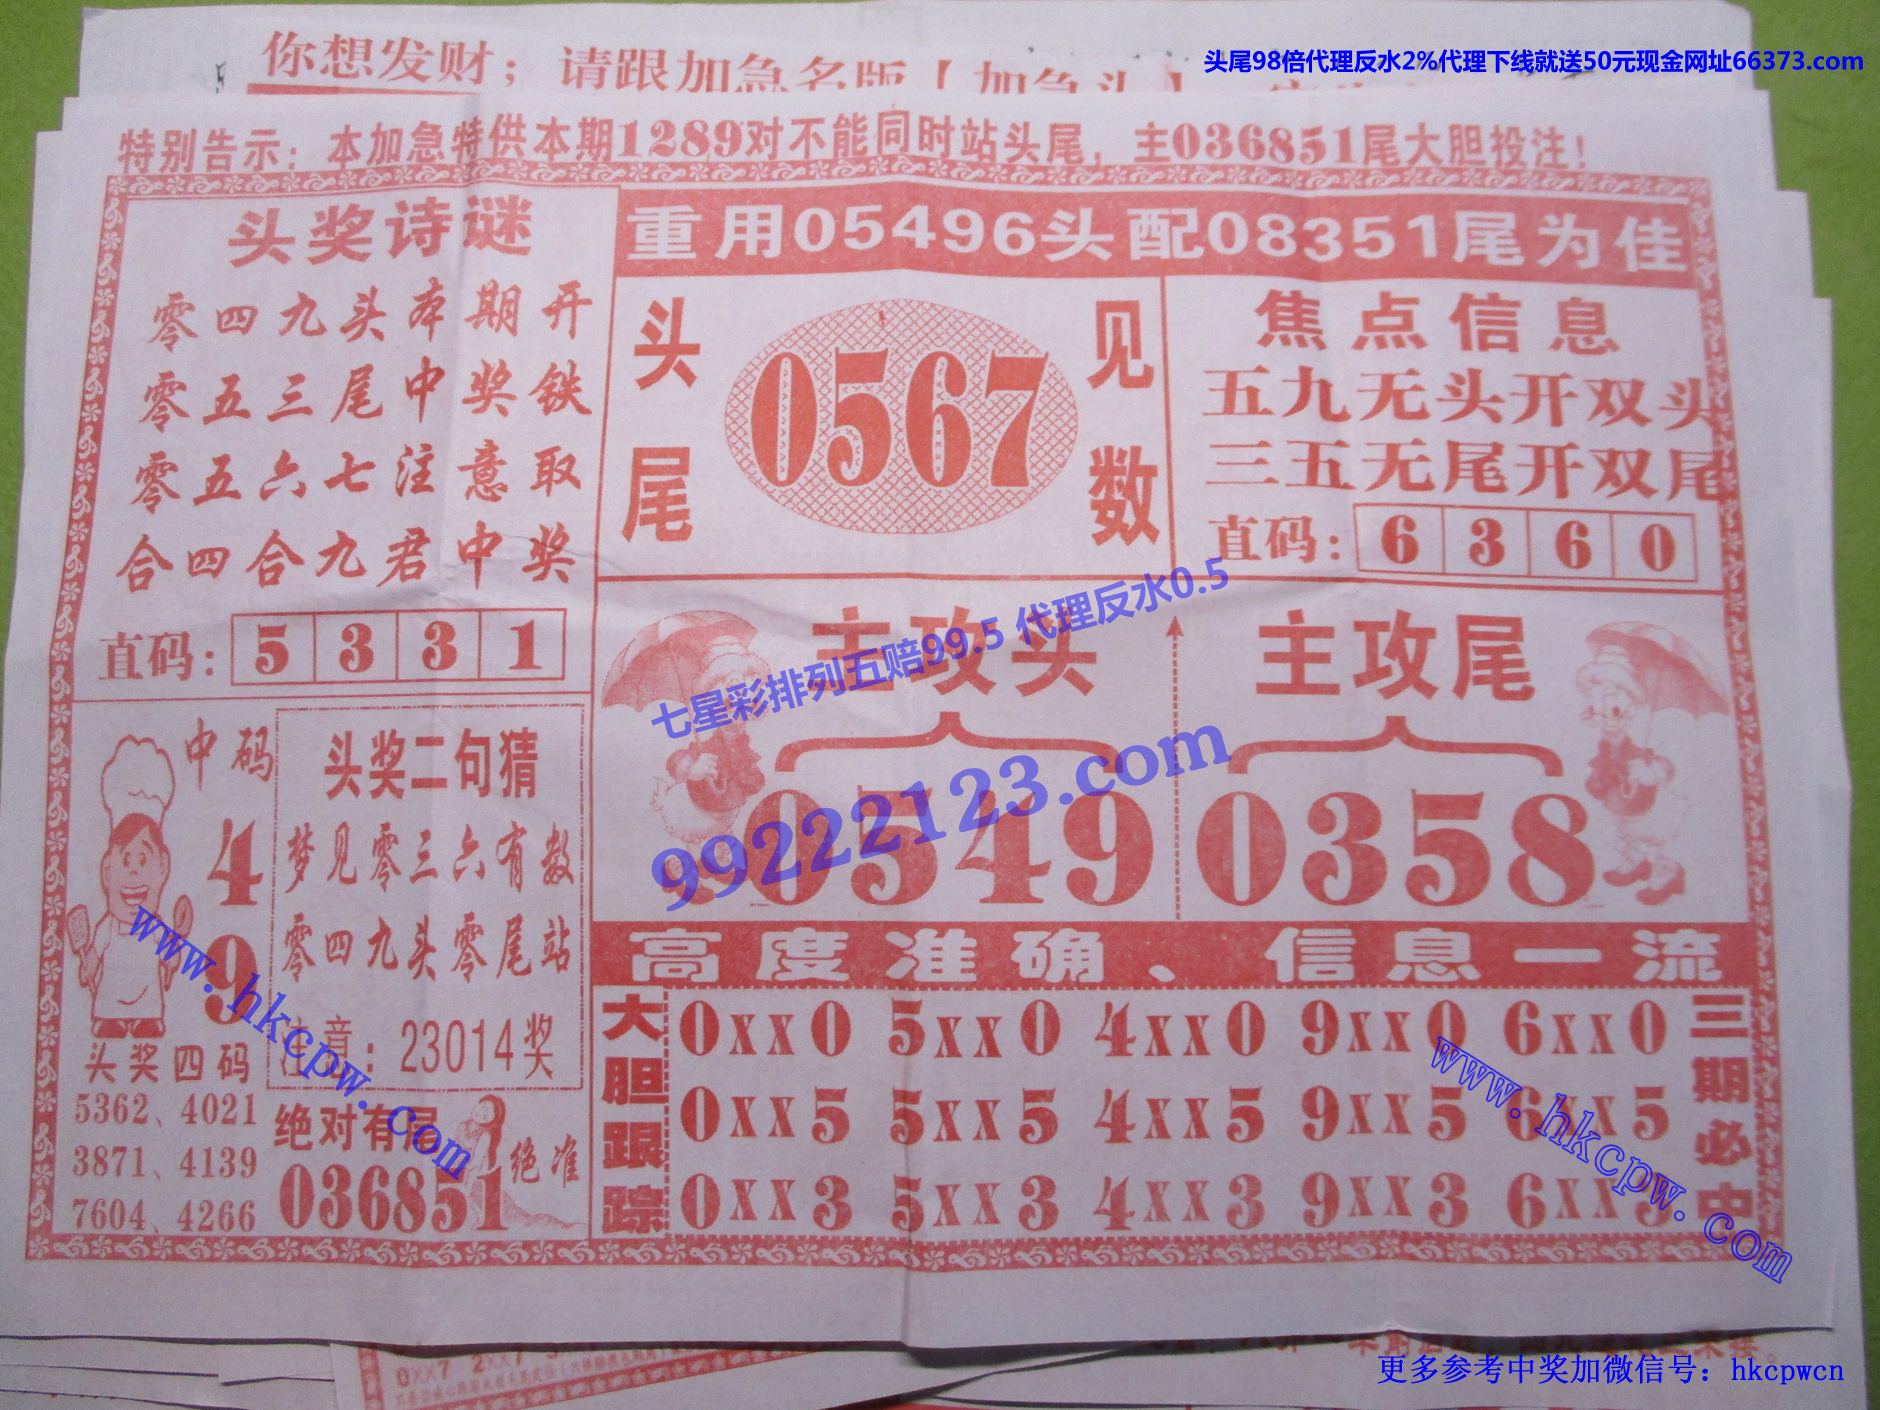 头尾98倍代理反水2%代理下线就送50元现金网址66373.com
你想发财；请跟加急名版【加急头】
特别告示：本加急特供本期1289对不能同时站头尾，主036851尾大胆投注！
头奖诗谜
零四九头本期开
零五三尾中奖铁
零五六七注意取
合四合九君中奖
直码：5331
重用05496头配08351尾为佳
头尾
0567
见数
焦点信息
五九无头开双头
三五无尾开双尾
直码：6360
主攻头
0549
主攻尾
0358
七星彩排列五赔99.5 代理反水0.5
99222123.com
中码
4
9
头奖四码
5362、4021
3871、4139
7604、4266
头奖二句猜
梦见零三六有数
零四九头零尾站
注意：23014奖
绝对有尾
036851
绝准
高度准确、信息一流
大胆跟踪
0xx0 5xx0 4xx0 9xx0 6xx0
0xx5 5xx5 4xx5 9xx5 6xx5
0xx3 5xx3 4xx3 9xx3 6xx3
三期必中
www.hkcpw.com
www.hkcpw.com
0xx7 2xx7
更多参考中奖加微信号：hkcpwcn